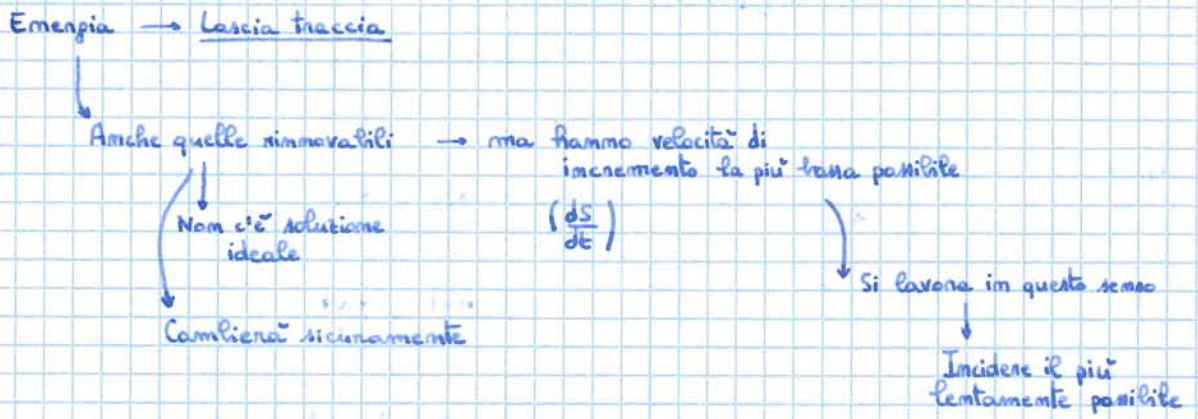 Energia → Lascia traccia
Anche quelle rinnovabili → ma hanno velocità di
incremento la più bassa possibile
(dS/dt)
Non c'è soluzione
ideale
Cambierà sicuramente
Si lavora in questo senso
Incidere il più
lentamente possibile